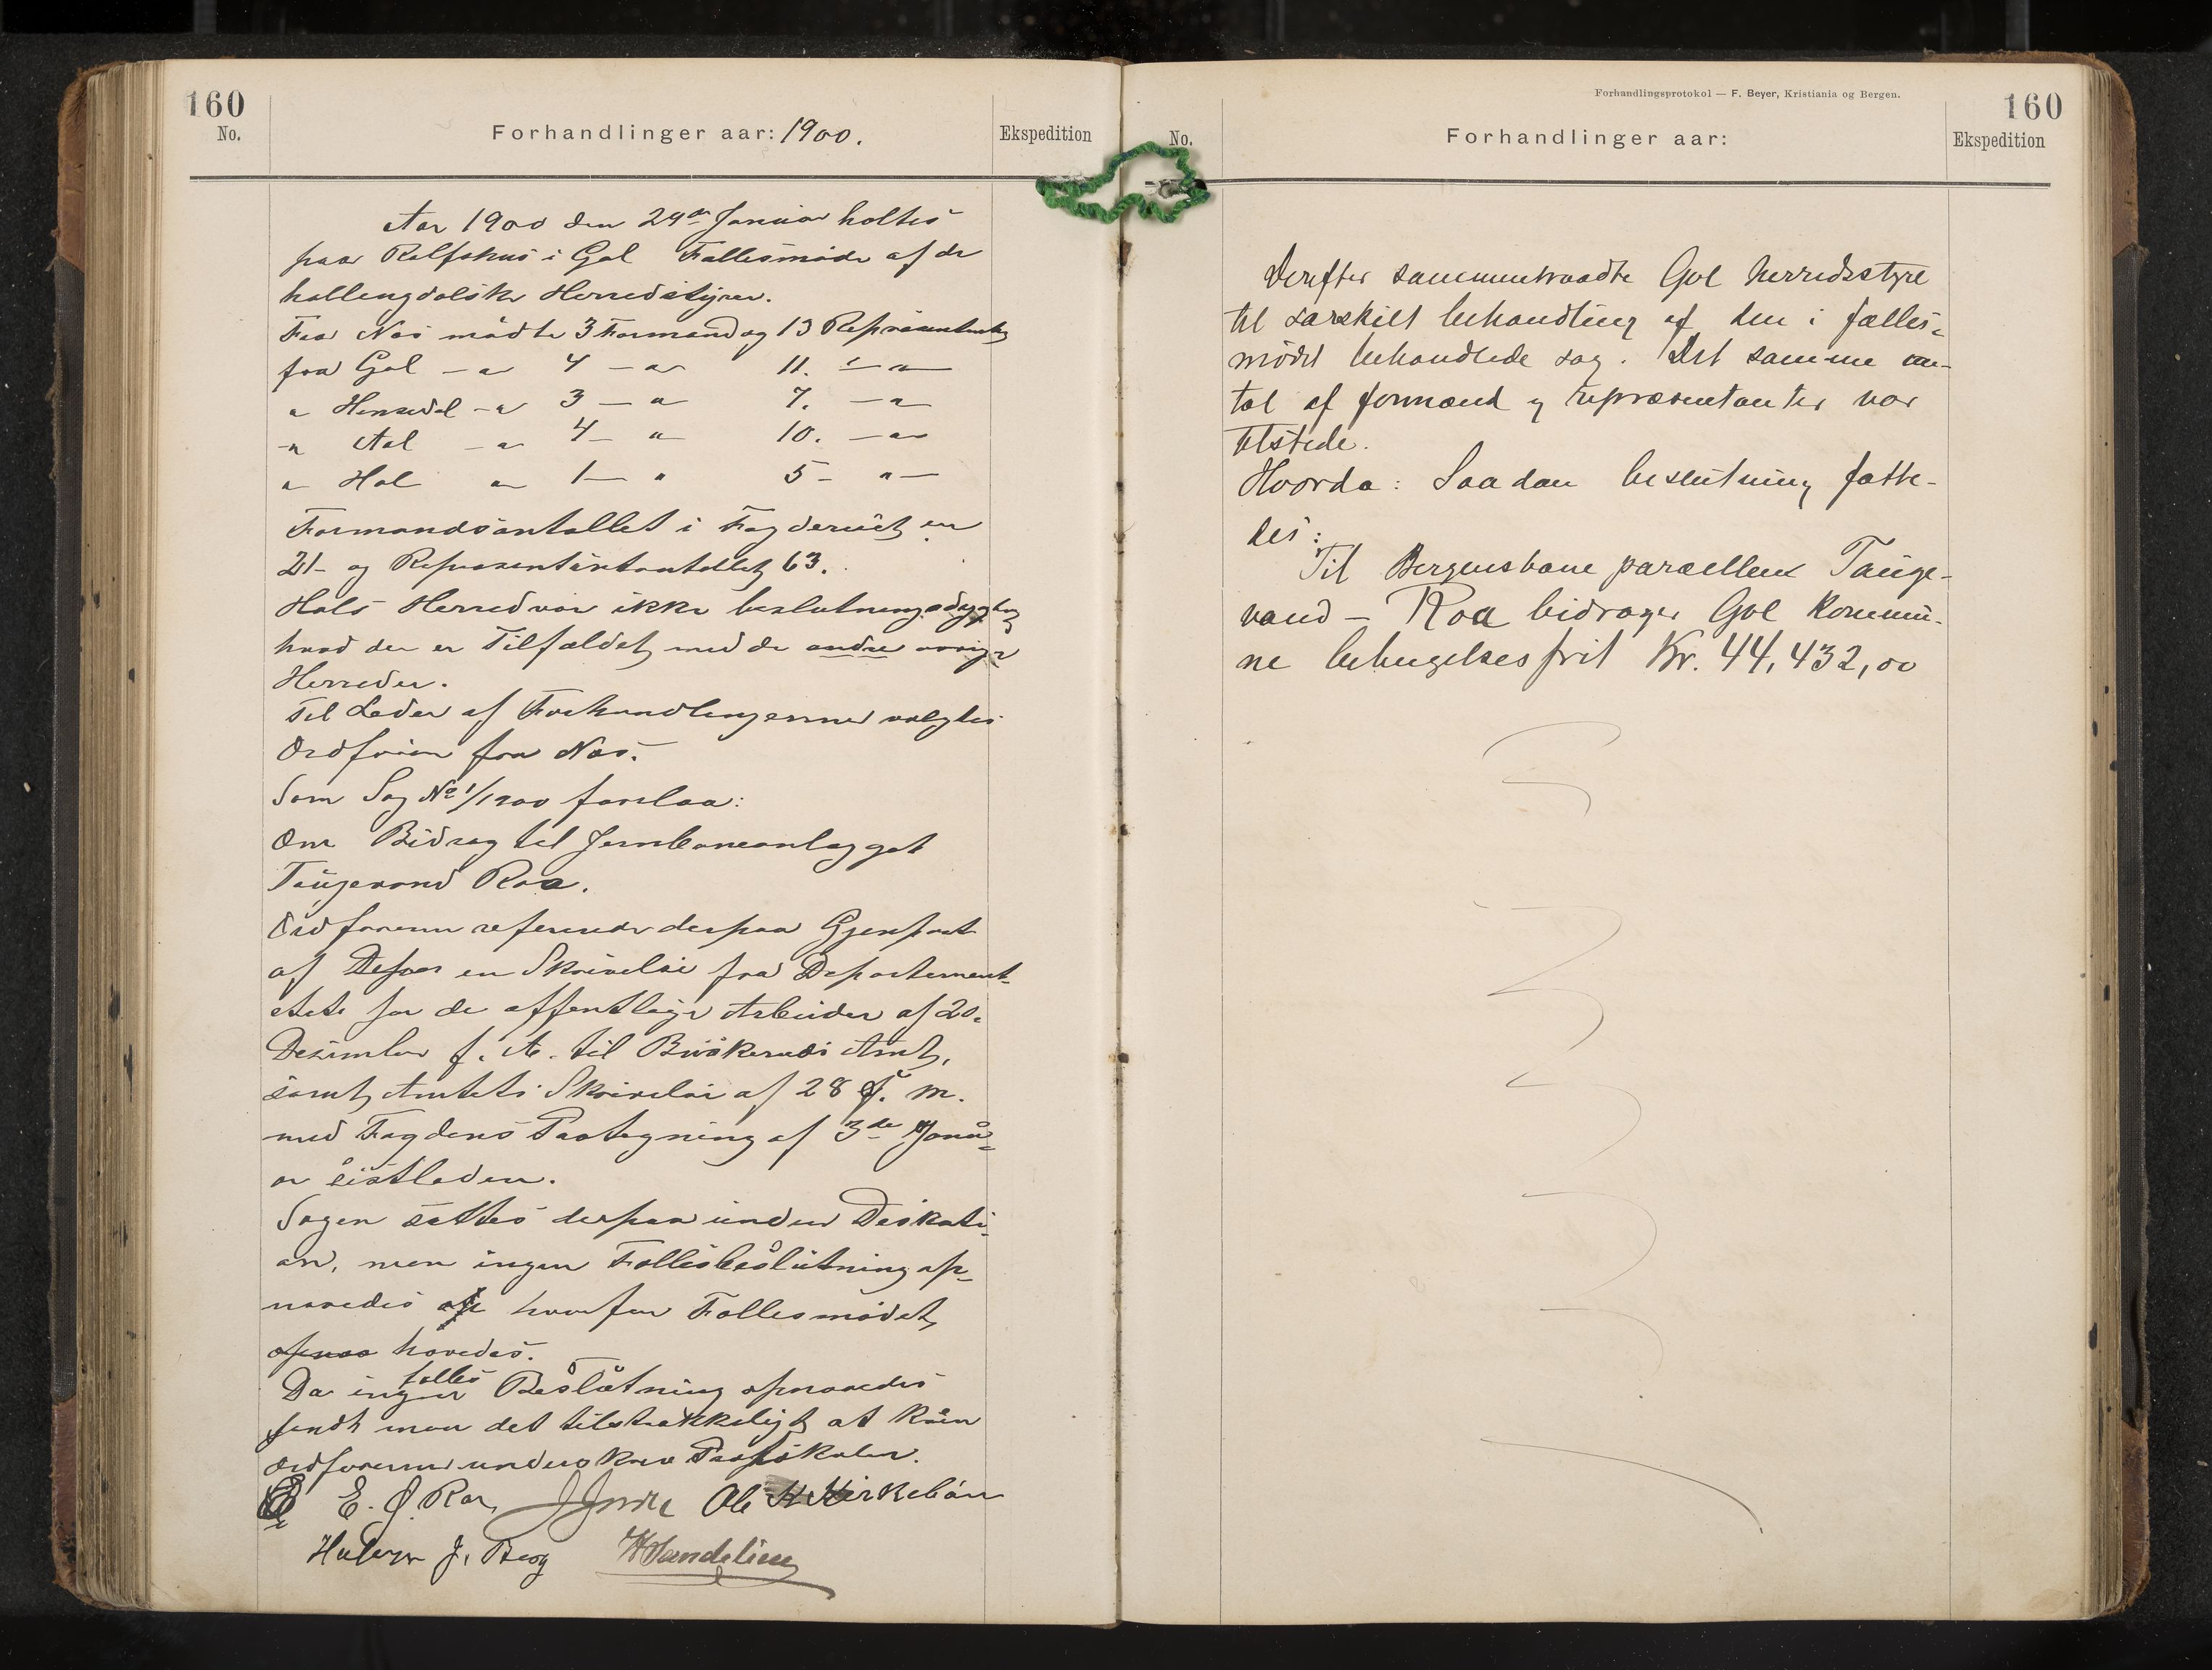 160
No.
Forhandlinger aar: 1900.
Ekspedition
Aar 1900 den 24de Januar holtes
paa Rolfshus i Gol Fællesmøde af de
hallingdalske Herredstyrer.
Fra Nes mødte 3 Formænd og 13 Repræsentanter
fra Gol - " 4 - " 11. - " -
" Hemsedal - " 3 - " 7. - "
" Aal - " 4 - " 10. - "
" Hol " 1 - " 5 - " -
Formandsantallet i Fogderiet er
21 - og Repræsentantantallet 63.
Hols Herred var ikke beslutningsdygtig
hvad der er Tilfældet med de andre øvrige
Herreder.
Til Leder af Forhandlingerne valgtes
Ordføren fra Nes.
Som Sag No 1/1900 forelaa:
Om Bidrag til Jernbaneanlægget
Taugevand Roa.
Ordføreren refererede derpaa Gjenpart
af en Skrivelse fra Departement-
etets for de offentlige Arbeider af 20.
Desember f. A. til Buskeruds Amt,
samt Amtets Skrivelse af 28 f. m.
med Fogdens Paategning af 3de Janu-
ar sistleden.
Sagen sattes derpaa under Diskusi-
on, men ingen Fællesbeslutning op-
naaedes hvorfor Fællesmødet
opnaa hævedes.
fælles
Da ingen Beslutning opnaaedes
fandt man det tilstrækkeligt at kun
Ordførerne underskrev Protokolen.
E. O. Roa Ole K Kirkebøn
Halvor J. Berg H Sandelien
Forhandlingsprotokol — F. Beyer, Kristiania og Bergen.
160
No.
Forhandlinger aar:
Ekspedition
Derefter sammentraadte Gol herredsstyre
til særskilt behandling af den i fælles-
mødet behandlede sag. Det samme an-
tal af formænd og repræsentanter var
tilstede.
Hvorda: Saadan beslutning fatte-
des:
Til Bergensbane parcellen Tauge-
vand - Roa bidrager Gol Kommu-
ne betingelsesfrit Kr. 44,432,00